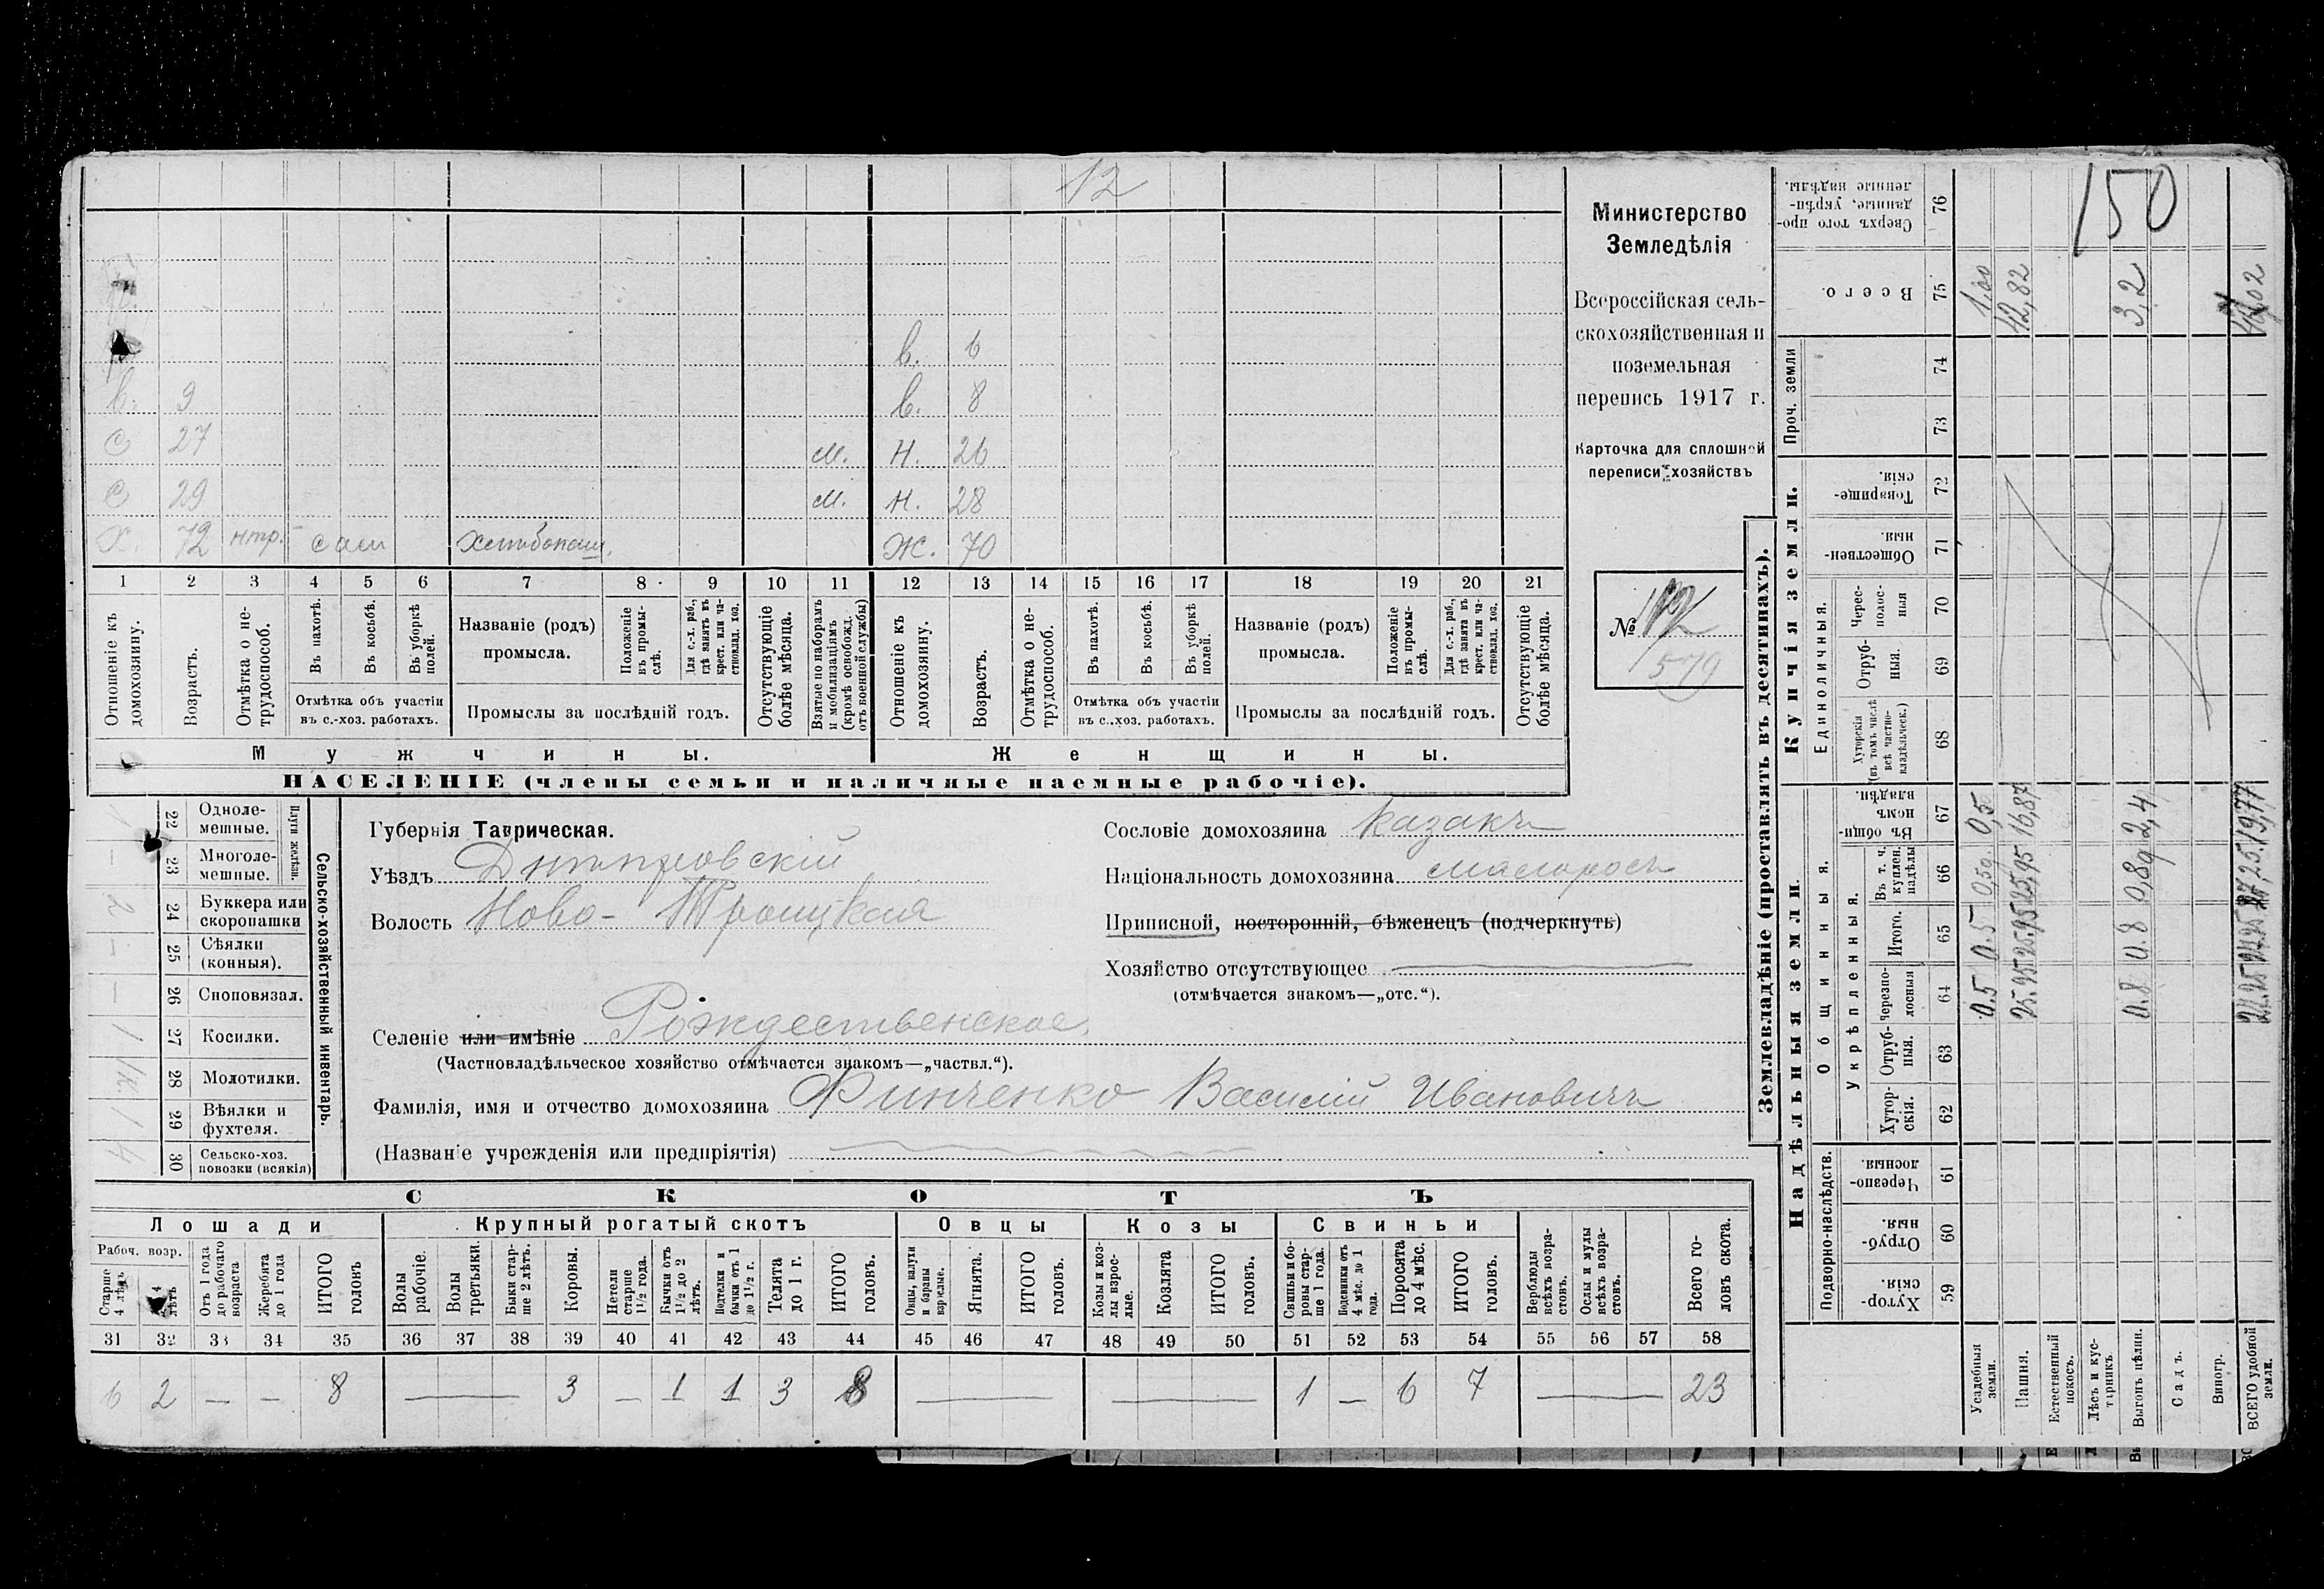 12
в. 6
в. 9 в. 8
с 27 м. н. 26
с 29 м. н. 28
х. 72 нтр. сам Хлѣбопаш. ж. 70
1 2 3 4 5 6 7 8 9 10 11 12 13 14 15 16 17 18 19 20 21
Отношеніе къ домохозяину.
Возрастъ.
Отмѣтка о не-
трудоспособ.
Въ пахотѣ.
Въ косьбѣ.
Въ уборкѣ полей.
Отмѣтка объ участіи
въ с.-хоз. работахъ.
Названіе (родъ)
промысла.
Положеніе
въ промы-
слѣ.
Для с.-х. раб.,
гдѣ занятъ въ
крест. или ча-
стновлад. хоз.
Промыслы за послѣдній годъ.
Отсутствующіе
болѣе мѣсяца.
Взятые по наборамъ
и мобилизаціямъ
(кромѣ освобожд.
отъ военной службы)
Отношеніе къ
домохозяину.
Возрастъ.
Отмѣтка о не-
трудоспособ.
Въ пахотѣ.
Въ косьбѣ.
Въ уборкѣ
полей.
Отмѣтка объ участіи
въ с.-хоз. работахъ.
Названіе (родъ)
промысла.
Положеніе
въ промы-
слѣ.
Для с.-х. раб.,
гдѣ занята въ
крест. или ча-
стновлад. хоз.
Промыслы за послѣдній годъ.
Отсутствующіе
болѣе мѣсяца.
Мужчины. Женщины.
НАСЕЛЕНІЕ (члены семьи и наличные наемные рабочіе).
Министерство
Земледѣлія
Всероссійская сель-
скохозяйственная и
поземельная
перепись 1917 г.
Карточка для сплошной
переписи хозяйствъ
№
579
Сельско-хозяйственный инвентарь.
Плуги желѣзн.
22 Одноле-
мешные.
1
23 Многоле-
мешные.
—
24 Буккера или
скоропашки
2
25 Сѣялки
(конныя).
—
26 Сноповязал.
—
27 Косилки.
1
28 Молотилки.
29 Вѣялки и
фухтеля.
1
30 Сельско-хоз.
повозки (всякія)
4
Губернія Таврическая.
Уѣздъ Днѣпровскій
Волость Ново-Троицкая
Сословіе домохозяина казакъ
Національность домохозяина малоросъ
Приписной, посторонній, бѣженецъ (подчеркнуть)
Хозяйство отсутствующее
(отмѣчается знакомъ—„отс.“).
Селеніе или имѣніе Рождественское.
(Частновладѣльческое хозяйство отмѣчается знакомъ—„частвл.“).
Фамилія, имя и отчество домохозяина Финченко Василій Ивановичъ
(Названіе учрежденія или предпріятія)
СКОТЪ
Лошади Крупный рогатый скотъ Овцы Козы Свиньи
Рабоч. возр.
Старше
4 лѣтъ
4
лѣтъ
Отъ 1 года
до рабочаго
возраста
Жеребята
до 1 года
ИТОГО
головъ
Волы
рабочіе.
Волы
третьяки.
Быки стар-
ше 2 лѣтъ.
Коровы.
Нетели
старше
1½ года.
Бычки отъ
1½ до 2
лѣтъ.
Подтелки и
бычки отъ 1
до 1½ г.
Телята
до 1 г.
ИТОГО
головъ.
Овцы, валухи
и бараны
взрослые.
Ягнята.
ИТОГО
головъ.
Козы и коз-
лы взрос-
лые.
Козлята
ИТОГО
головъ.
Свиньи и бо-
ровы стар-
ше 1 года.
Подсвинки отъ
4 мѣс. до 1
года.
Поросята
до 4 мѣс.
ИТОГО
головъ.
Верблюды
всѣхъ возра-
стовъ.
Ослы и мулы
всѣхъ возра-
стовъ.
Всего го-
ловъ скота.
31 32 33 34 35 36 37 38 39 40 41 42 43 44 45 46 47 48 49 50 51 52 53 54 55 56 57 58
6 2 — — 8 — 3 — 1 1 3 8 — — 1 — 6 7 — 23
Землевладѣніе (проставлять въ десятинахъ).
Надѣльныя земли
Купчія земли.
Подворно-наслѣдств.
Общинныя.
Укрѣпленныя.
Единоличныя.
Проч. земли
Хутор-
скія. 59
Отруб-
ныя. 60
Черезпо-
лосныя. 61
Хутор-
скія. 62
Отруб-
ныя. 63
Черезпо-
лосныя 64
Итого. 65
Въ т. ч.
куплен.
надѣлы 66
Въ общи-
номъ
владѣн. 67
Хуторскія
(въ томъ числѣ
всѣ частно-
владѣльческ.) 68
Отруб-
ныя. 69
Черес-
полос-
ныя 70
Обществен-
ныя. 71
Товарище-
скія. 72
73
74
Всего. 75
Сверхъ того про-
данные, укрѣп-
ленные надѣлы. 76
Усадебныя
земли.
0.5 0.5 0,5 1,00
Пашня.
25.95 25.95 25,95 16,87 42,82
Естественный
покосъ.
Лѣсъ и кус-
тарникъ.
Выгонъ цѣлин.
0.8 0.8 0,8 2,4 3,2
Садъ.
Виногр.
ВСЕГО удобной
земли.
19,77
150